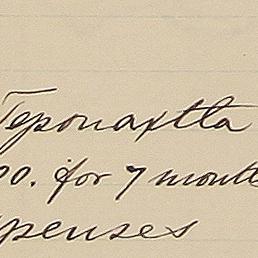 Teponaxtla
00. for 7 month
penses